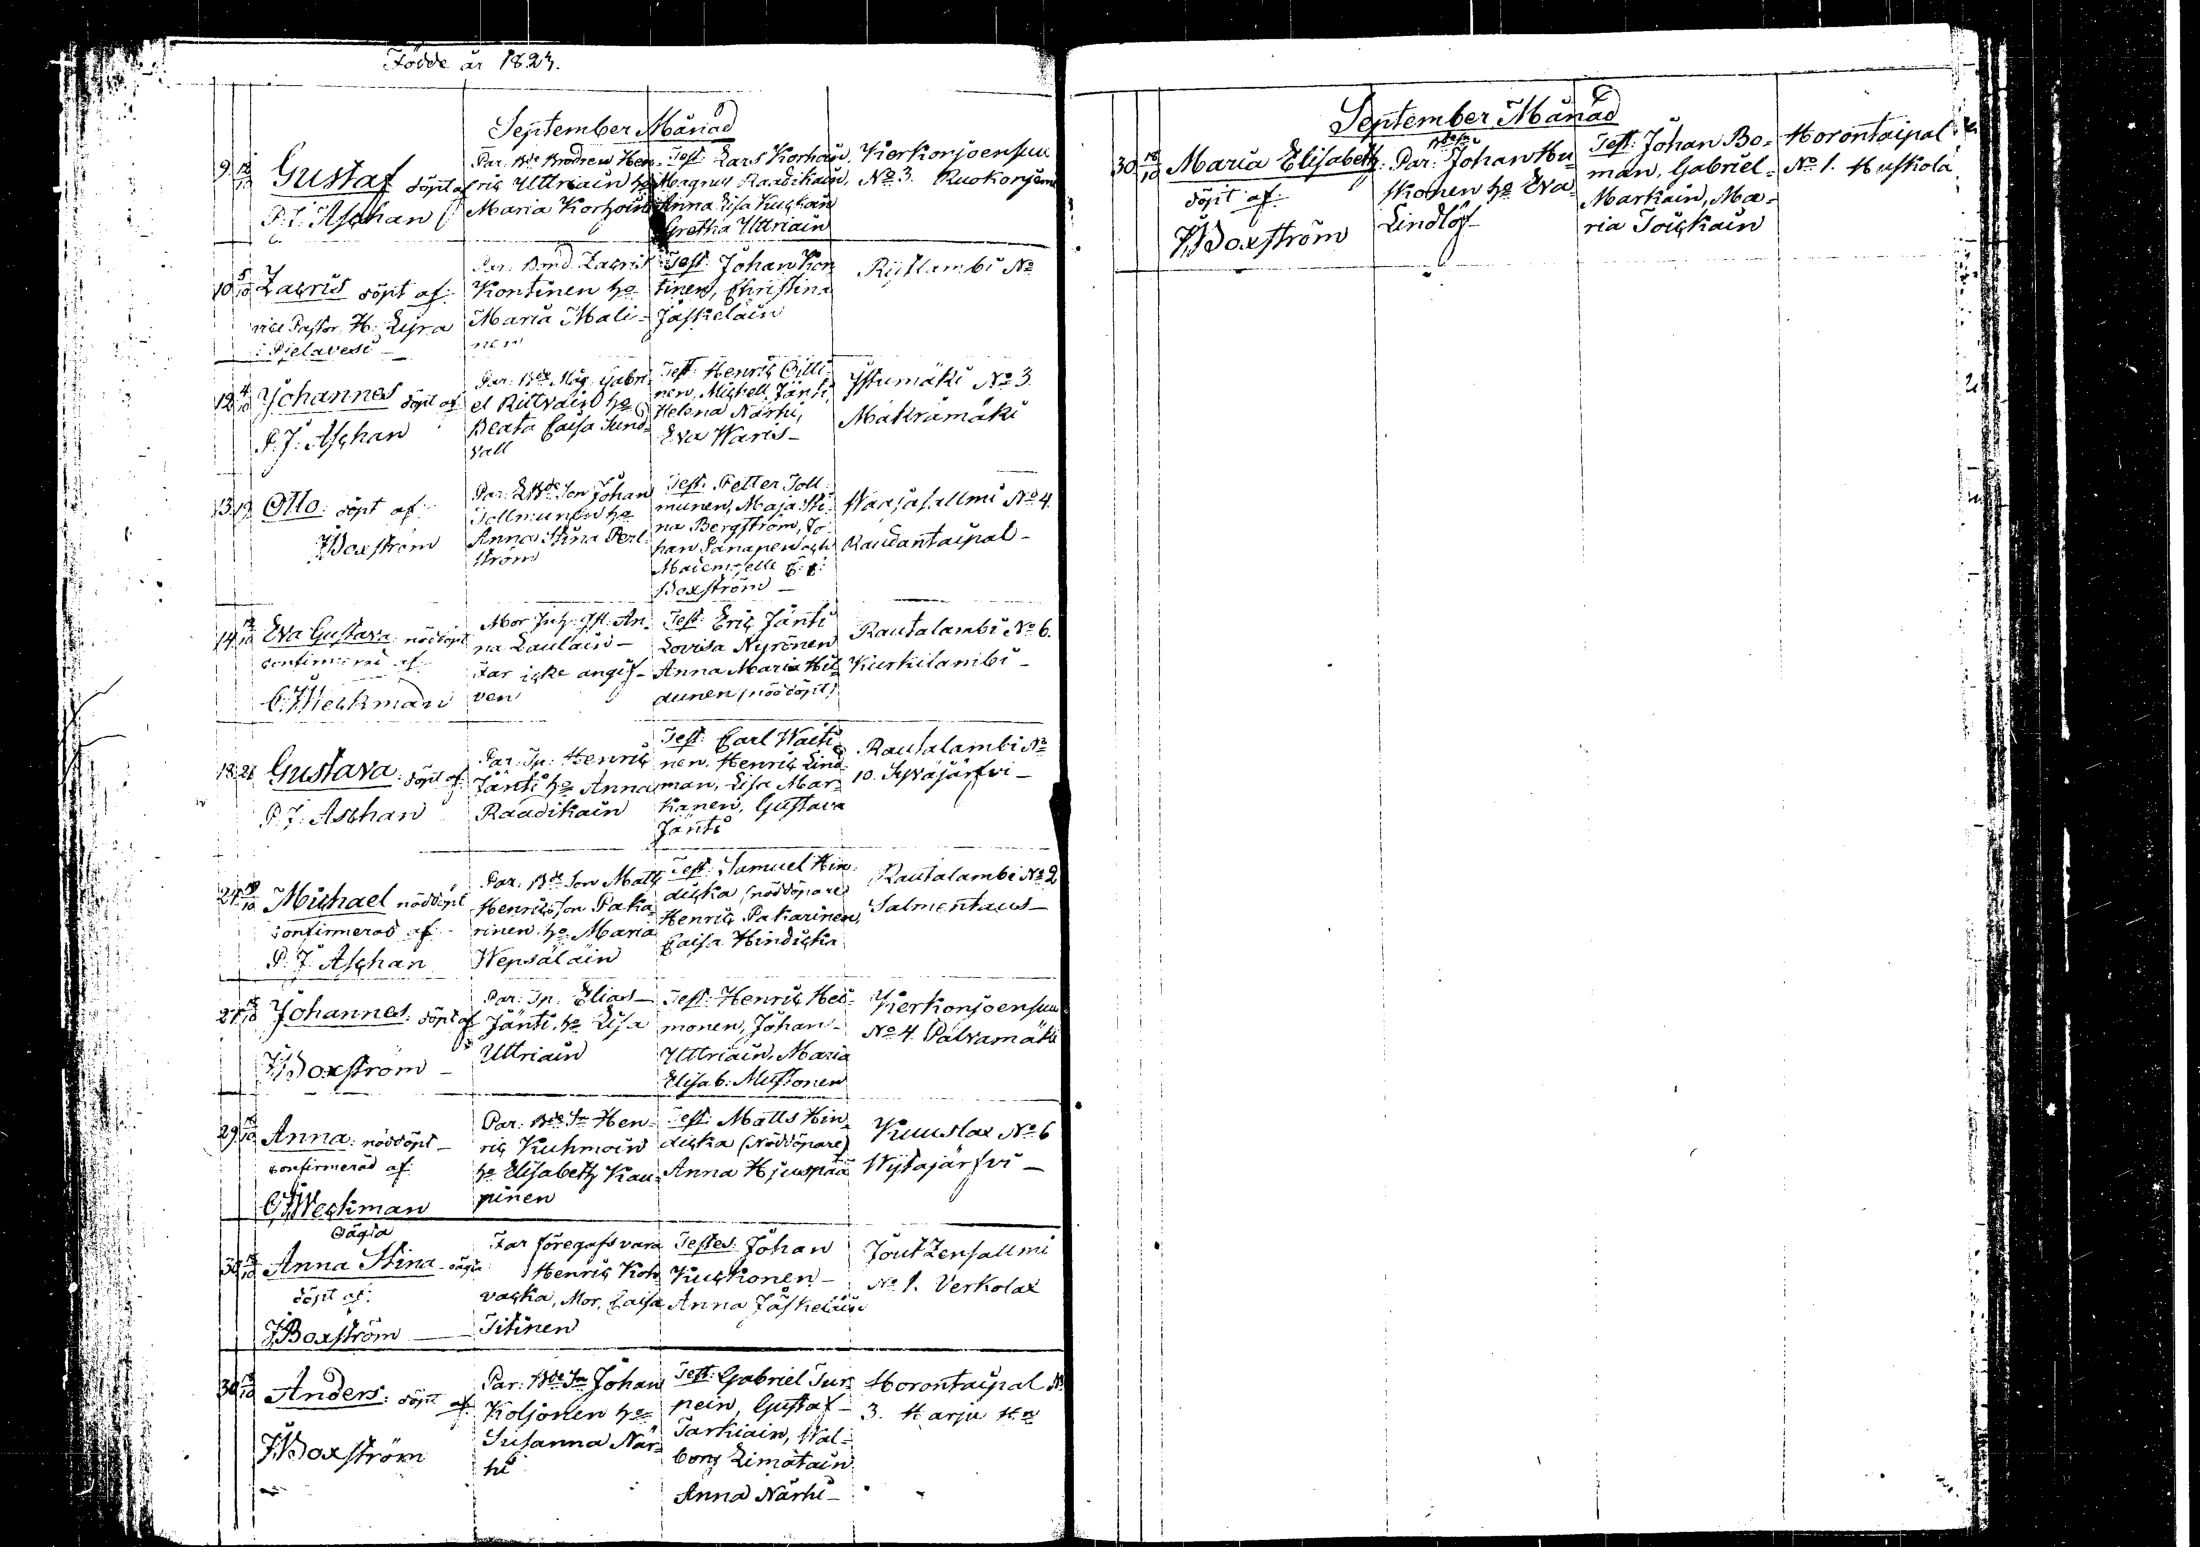 Födde år 1823.
September Månad
9 12/10 Gustaf döpt af
P. J. Aschan
Par. Bde Brodren Hen-
ric Uttriain ho
Maria Korhoin
Test: Lars Korhoin,
Magnus Raadikain,
Anna Lisa Kuckain
Gretha Uttriain
Kierkonjoensuu
No 3. Ruokonjemi
10 5/10 Zacris döpt af
vice Pastor H. Lyra
i Pielavesi
Par. Bond. Zacris
Kontinen ho
Maria Mali-
nen
Test: Johan Kon
tinen, Christina
Jäskeläin
Rijtlambi No
12 4/10 Johannes döpt af
P. J. Aschan
Par: Bde Måg Gabri-
el Rittvain ho
Beata Caisa Sund-
vall
Test: Henric Oilli-
nen, Michell Jänti,
Helena Närhi,
Eva Waris-
Istumäki No 3
Mäkrämäki
13 12 Otto: döpt af
J. Boxström
Par. Son Johan
Tollmunen ho
Anna Stina Perl-
ström
Test: Petter Toll-
munen, Maja Sti-
na Bergström, Jo-
han Sanapen och
Mademoiselle
Boxström
Waajasallmi No 4.
Raudantaipal-
14 12/10 Eva Gustava: nöddöpt
confirmerad af
C. Weckman
Mor Inh. An-
na Laulain-
Far icke angif-
ven
Test: Eric Jänti
Lovisa Nyrönen
Anna Maria Hil-
dunen (nöddöpt)
Rautalambi No 6.
Kurkilambi-
18 21 Gustava: döpt af
P. J. Aschan
Par. Tp: Henric
Jänti ho Anna
Raadikain
Test: Carl Waiti-
nen, Henric Lind-
man, Lisa Mar-
kanen, Gustava
Jänti
Rautalambi No
10. Syväjärfvi-
24 19/10 Michael nöddöpt
confirmerad af
P. J. Aschan
Par: Bde Son Matts
Henricsson Paka-
rinen ho Maria
Wepsäläin
Test: Samuel Hin-
dicka (nöddöpare)
Henric Pakarinen,
Caisa Hindicka
Rautalambi No 2
Salmentaus-
27 18/10 Johannes: döpt af
J. Boxström
Par: Tp. Elias
Jänti, ho Lisa
Uttriain
Test: Henric Hei-
monen, Johan
Uttriain, Maria
Elisab: Mustonen
Kierkonjoensuu
No 4. Palvamäki
29 12/10 Anna: nöddöpt-
confirmerad af
C. Weckman
Par: Bde Sn Hen-
ric Kuhmoin
ho Elisabeth Kau-
pinen
Test: Matts Hin-
dicka (Nöddöpare)
Anna Hjuspää
Kuuslax No 6
Wijtajärfvi-
oägta
30 18/10 Anna Stina oägta
döpt af:
J. Boxström
Far föregafs vara
Henric Koh-
vacka, Mor, Caisa
Titinen
Testes: Johan
Kuckonen-
Anna Jäskeläin
Joutzensallmi
No 1. Verkolax
30 18/10 Anders: döpt af
J. Boxström
Par: Bde Sn Johan
Koljonen ho
Susanna När-
hi
Test: Gabriel Tur-
pein, Gustaf
Tarkiain, Wal-
borg Limatain
Anna Närhi-
Horontaipal No
3. Harju
September Månad
30 18/10 Maria Elisabeth
döpt af
J. Boxström
Par: Johan Hu-
skonen ho Eva
Lindlöf-
Test: Johan Bo-
man, Gabriel
Markain, Ma-
ria Toickain
Horontaipal
No 1. Huskola